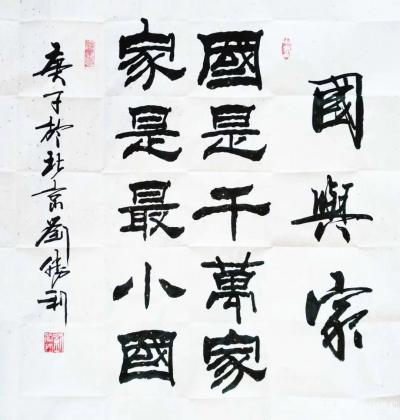 國與家
國是千萬家
家是最小國
庚子於北京劉勝利